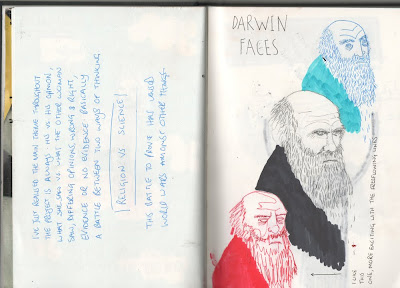 I'VE JUST REALISED THE MAIN THEME THROUGHOUT
THE PROJECT IS ALWAYS: HIS VS HIS OPINION,
WHAT SHE SAW VS WHAT THE OTHER WOMAN
SAW, DIFFERING OPINIONS, WRONG & RIGHT,
EVIDENCE OR NO EVIDENCE. BASICALLY
A BATTLE BETWEEN TWO WAYS OF THINKING.
RELIGION VS SCIENCE!
THIS BATTLE TO PROVE HAS CAUSED
WORLD WARS AMONGST OTHER THINGS.
DARWIN
FACES
I LIKE
THIS
ONE, MORE EXCITING WITH THE FREEFLOWING LINES